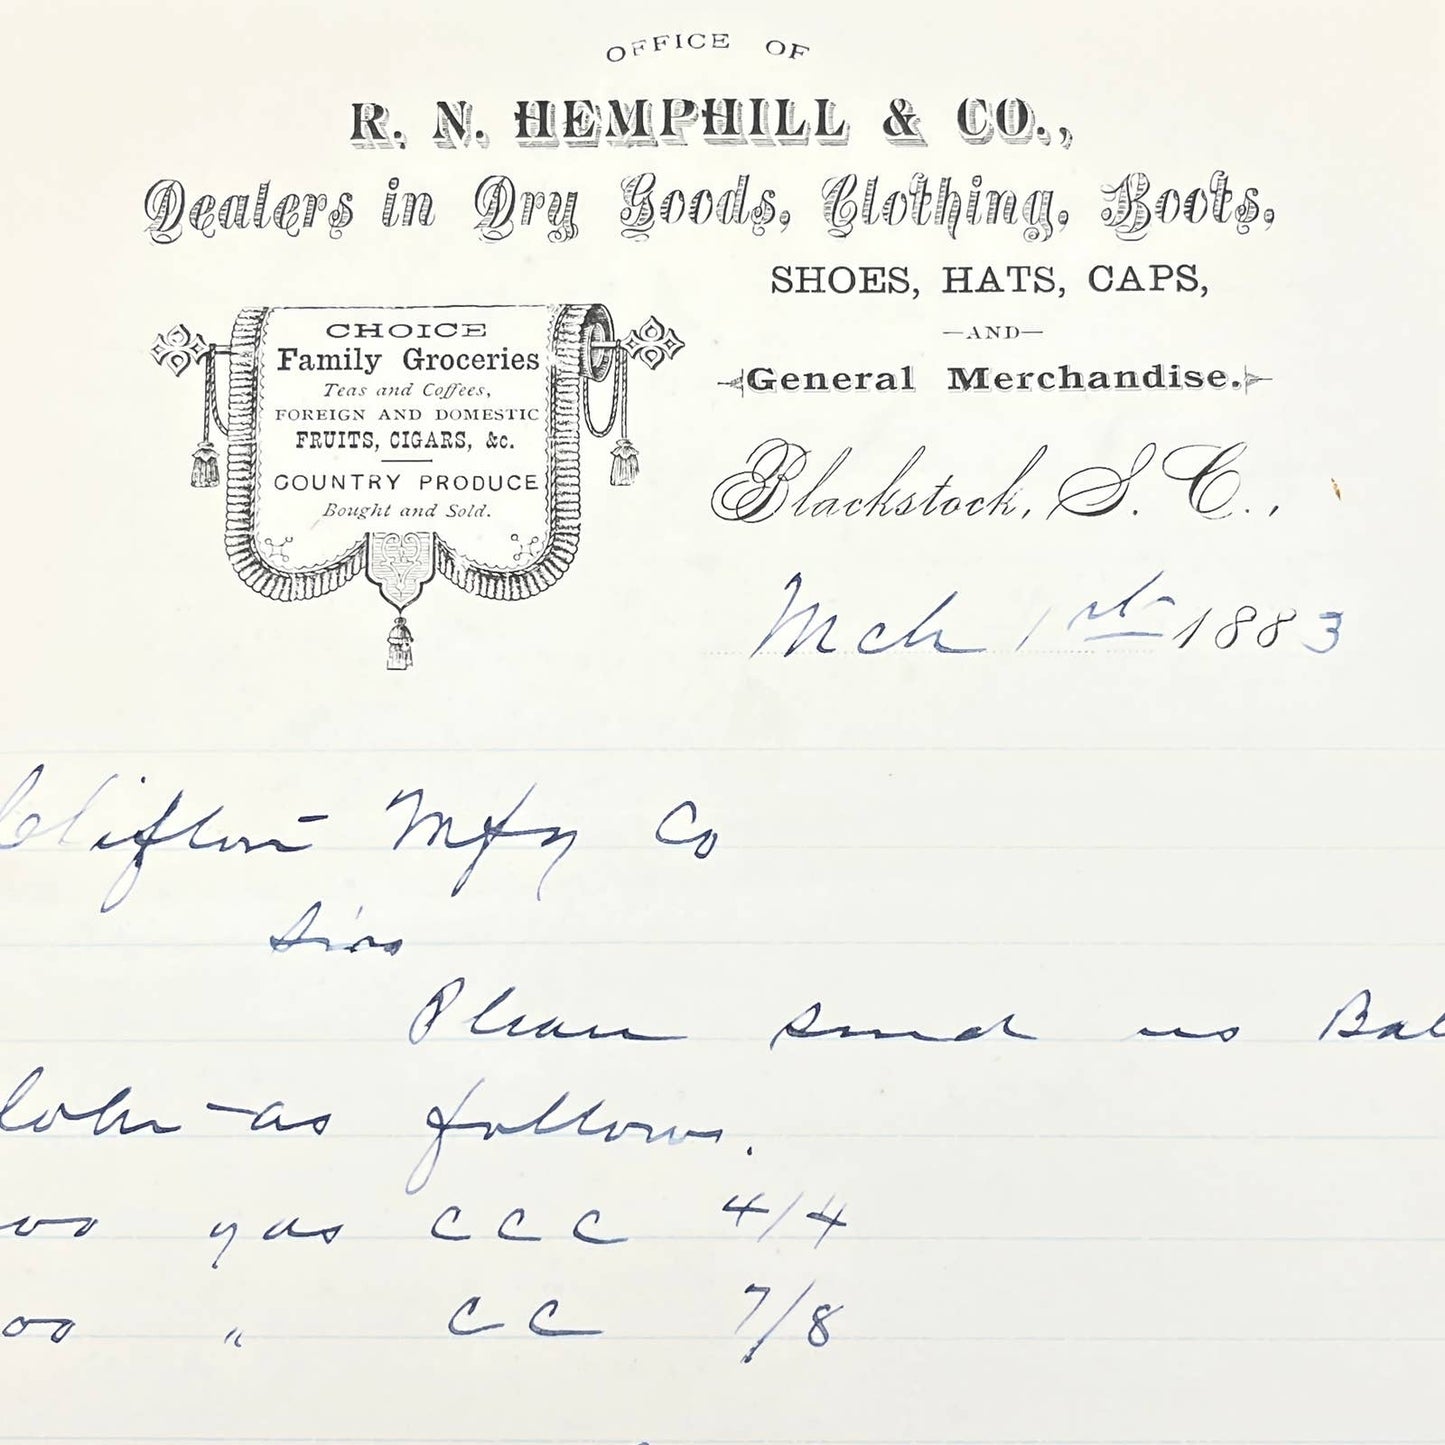 OFFICE OF
R. N. HEMPHILL & CO.,
Dealers in Dry Goods, Clothing, Boots,
SHOES, HATS, CAPS,
—AND—
General Merchandise.
CHOICE
Family Groceries
Teas and Coffees,
FOREIGN AND DOMESTIC
FRUITS, CIGARS, &c.
COUNTRY PRODUCE
Bought and Sold.
Blackstock, S. C.,
Mch 1st 1883
Clifton Mfg Co
Sirs
Please send us Bal
as follows.
00 yds C C C 4/4
00 " C C 7/8